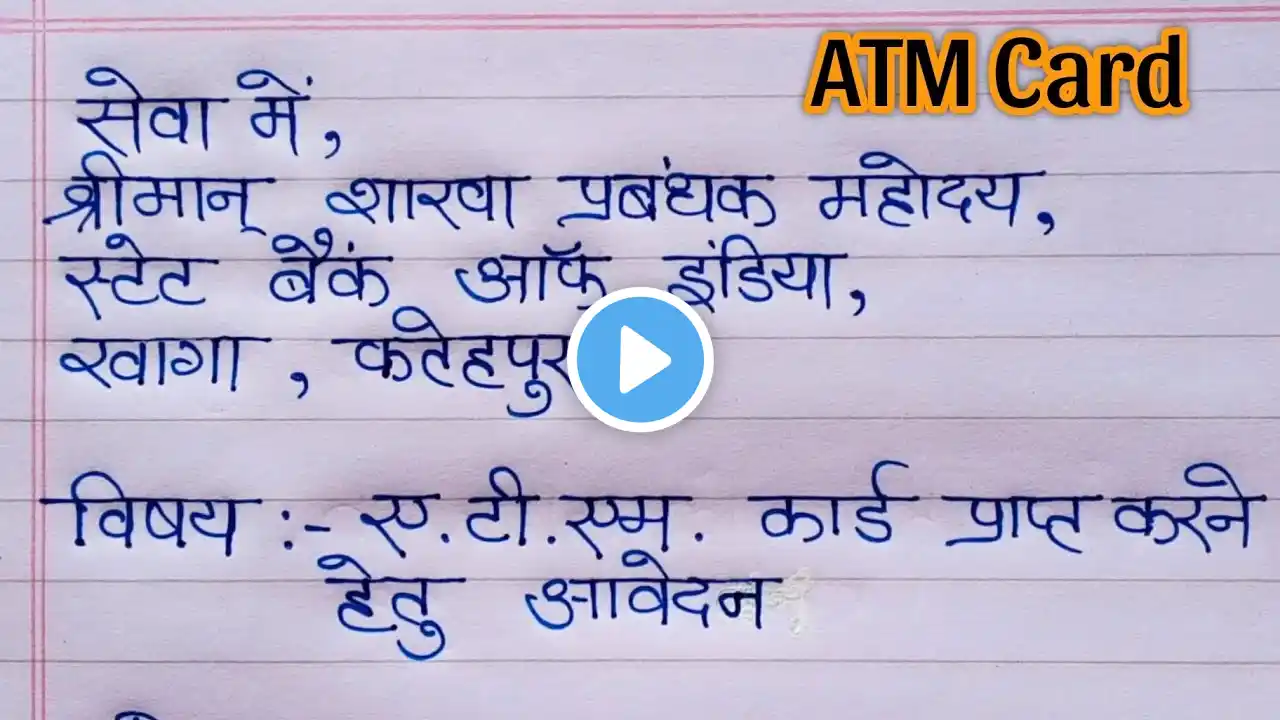 ATM Card
सेवा में,
श्रीमान् शाखा प्रबंधक महोदय,
स्टेट बैंक ऑफ इंडिया,
खागा, फतेहपुर
विषय :- ए.टी.एम. कार्ड प्राप्त करने
हेतु आवेदन